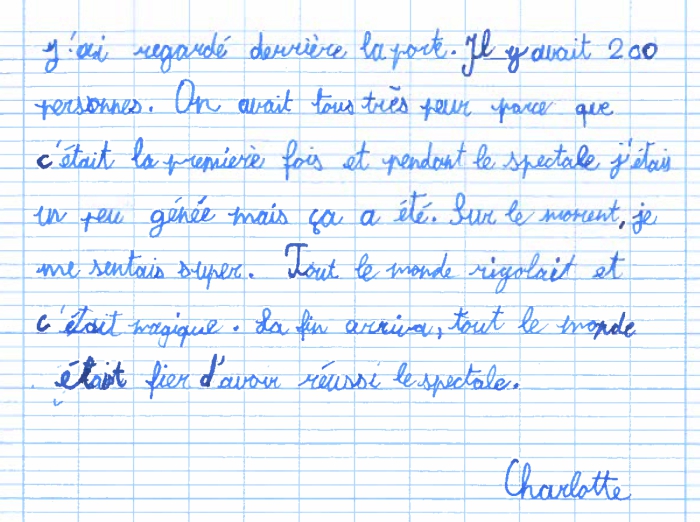 j'ai regardé derrière la porte. Il y avait 200
personnes. On avait tous très peur parce que
c'était la premierè fois et pendant le spectale j'étais
un peu génée mais ça a été. Sur le moment, je
me sentais super. Tout le monde rigolait et
c'était magique. La fin arriva, tout le monde
était fier d'avoir réussi le spectale.
Charlotte